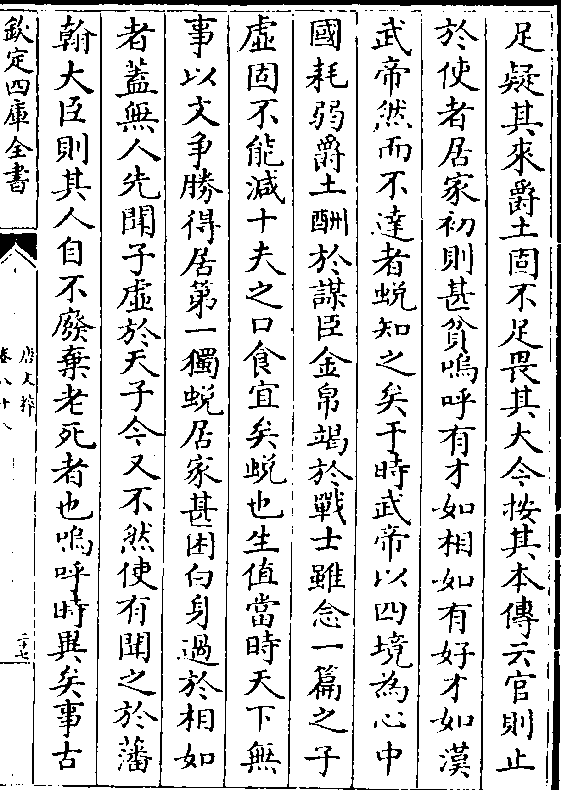 足疑其來爵土固不足畏其大今按其本傳云官則止
於使者居家初則甚貧嗚呼有才如相如有好才如漢
武帝然而不達者蜕知之矣于時武帝以四境為心中
國耗弱爵土酬於謀臣金帛竭於戰士雖念一篇之子
虛固不能減十夫之口食宜矣蜕也生值當時天下無
事以文爭勝得居第一獨蜕居家甚困白身過於相如
者蓋無人先聞子虛於天子今又不然使有聞之於藩
翰大臣則其人自不廢棄老死者也嗚呼時異矣事古
欽定四庫全書
唐文粹
卷八十八
二十七